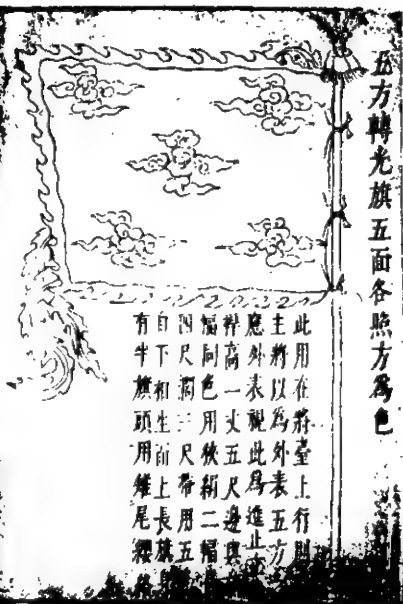 五方轉光旗五面各照方爲色
此用在將臺上行則
主將以爲外表五方
應外表視此爲進止
桿高一丈五尺邊與
幅同色用狹絹二幅
四尺濶三尺帶用五
自下相生而上長旗身
有半旗頭用雉尾纓絡